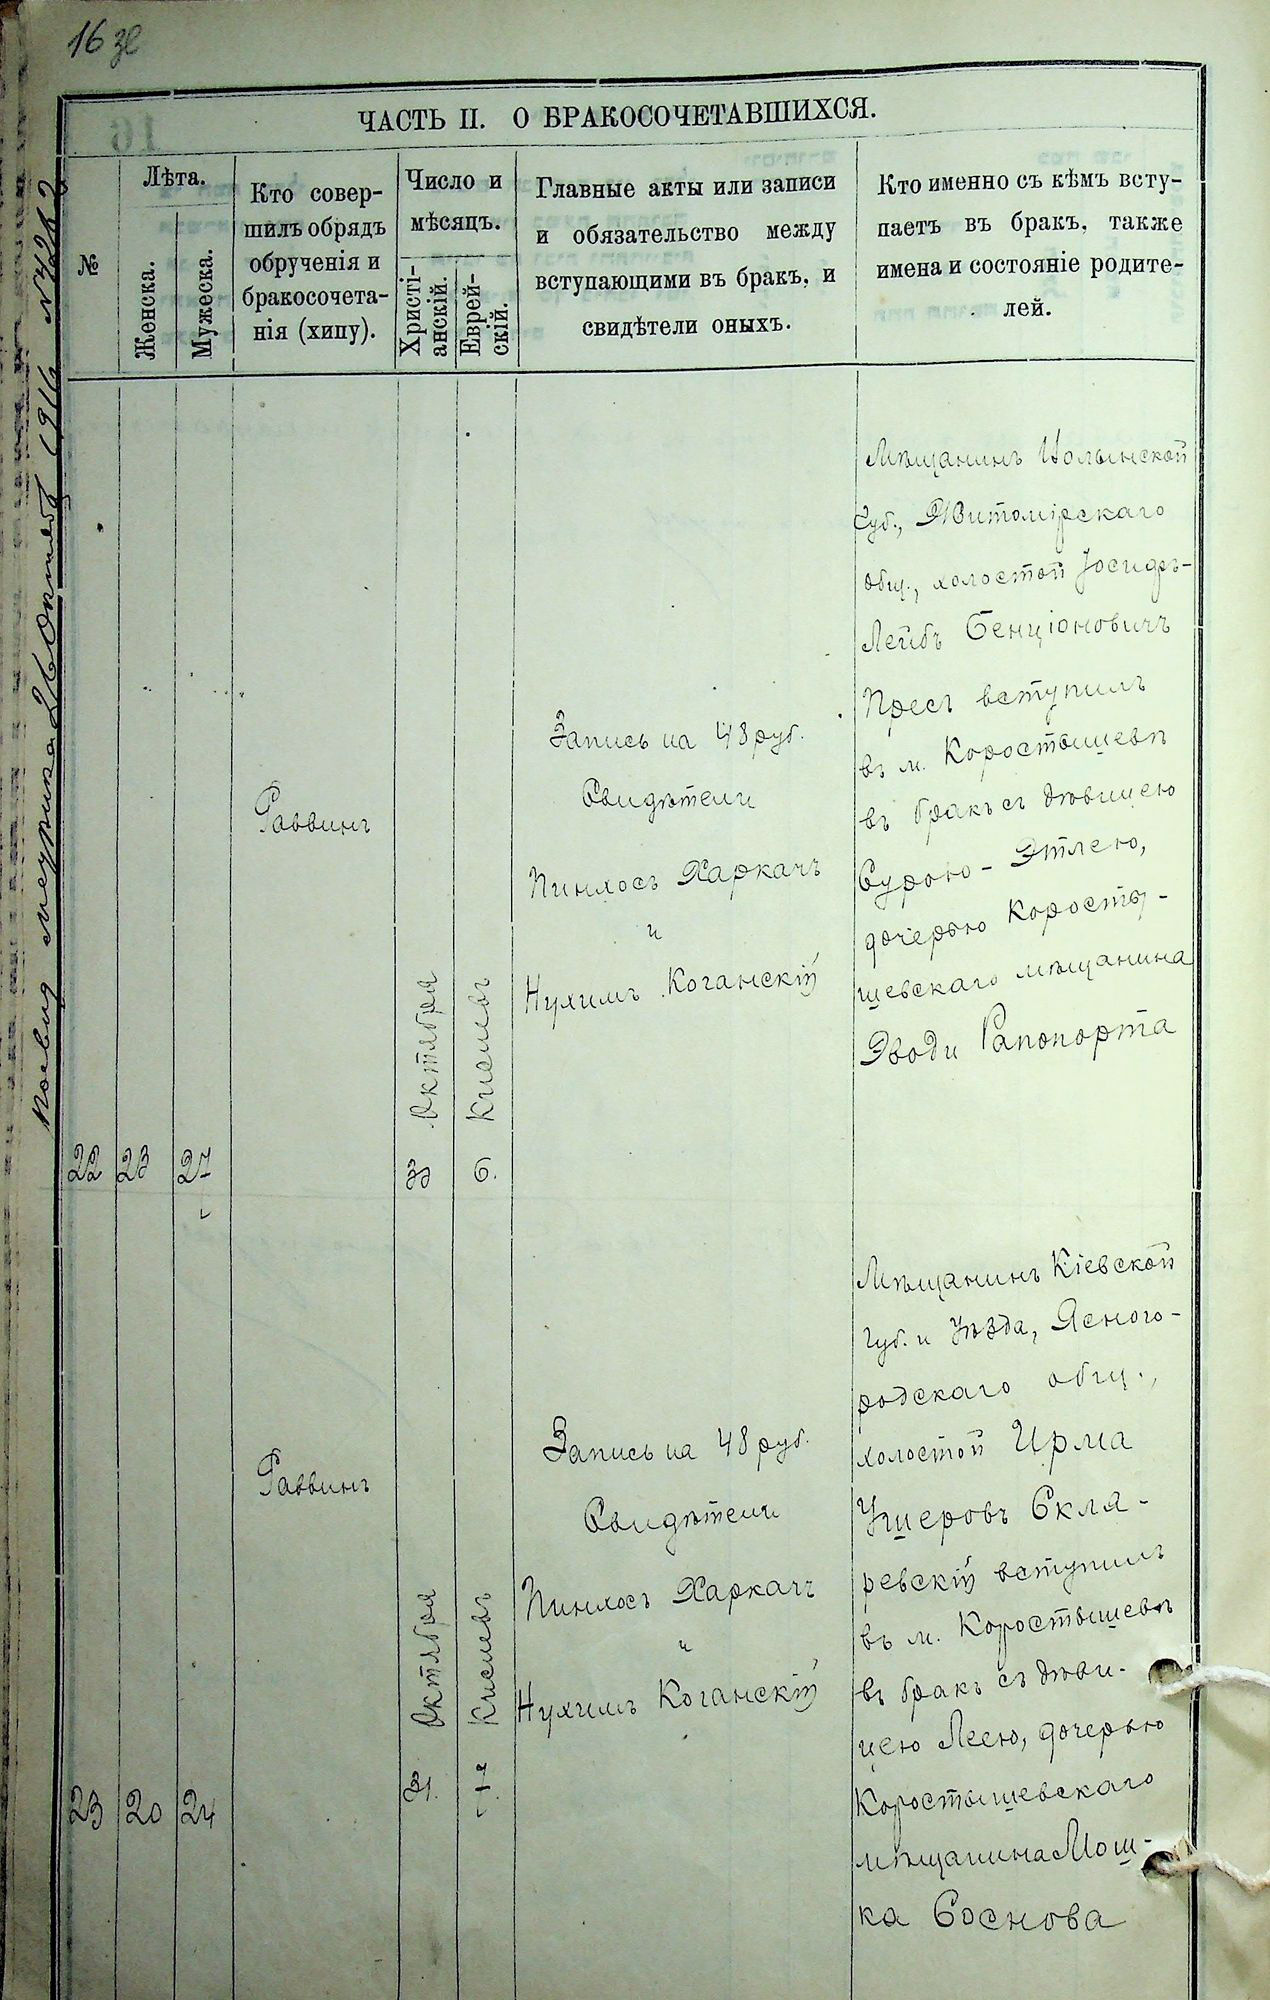 16 зв
Посвид метрика 26 Октября 1916 № 4282
ЧАСТЬ II. О БРАКОСОЧЕТАВШИХСЯ.
№
Лѣта.
Женска.
Мужеска.
Кто совер-
шилъ обрядъ
обрученія и
бракосочета-
нія (хипу).
Число и
мѣсяцъ.
Христі-
анскій.
Еврей-
скій.
Главные акты или записи
и обязательство между
вступающими въ бракъ, и
свидѣтели оныхъ.
Кто именно съ кѣмъ всту-
паетъ въ бракъ, также
имена и состояніе родите-
лей.
22
23
27
Раввинъ
Октября
6. Кислевъ
Запись на 48 руб.
Свидѣтели
Пинхосъ Харкачъ
и
Нухимъ Коганскій
Мѣщанинъ Волынской
Губ., Житомірскаго
общ., холостой Іосифъ-
Лейбъ Бенціоновичъ
Пресъ вступилъ
въ м. Коростышевѣ
въ бракъ съ дѣвицею
Сурою-Этлею,
дочерью Коросты-
шевскаго мѣщанина
Эводи Рапопорта
23
20
24
Раввинъ
Октября
Кислевъ
Запись на 48 руб.
Свидѣтели
Пинхосъ Харкачъ
и
Нухимъ Коганскій
Мѣщанинъ Кіевской
губ. и уѣзда, Ясного-
родскаго общ.,
холостой Ирма
Ушеровъ Скля-
ревскій вступилъ
въ м. Коростышевѣ
въ бракъ съ дѣви-
цею Леею, дочерью
Коростышевскаго
мѣщанина Мош-
ка Соснова